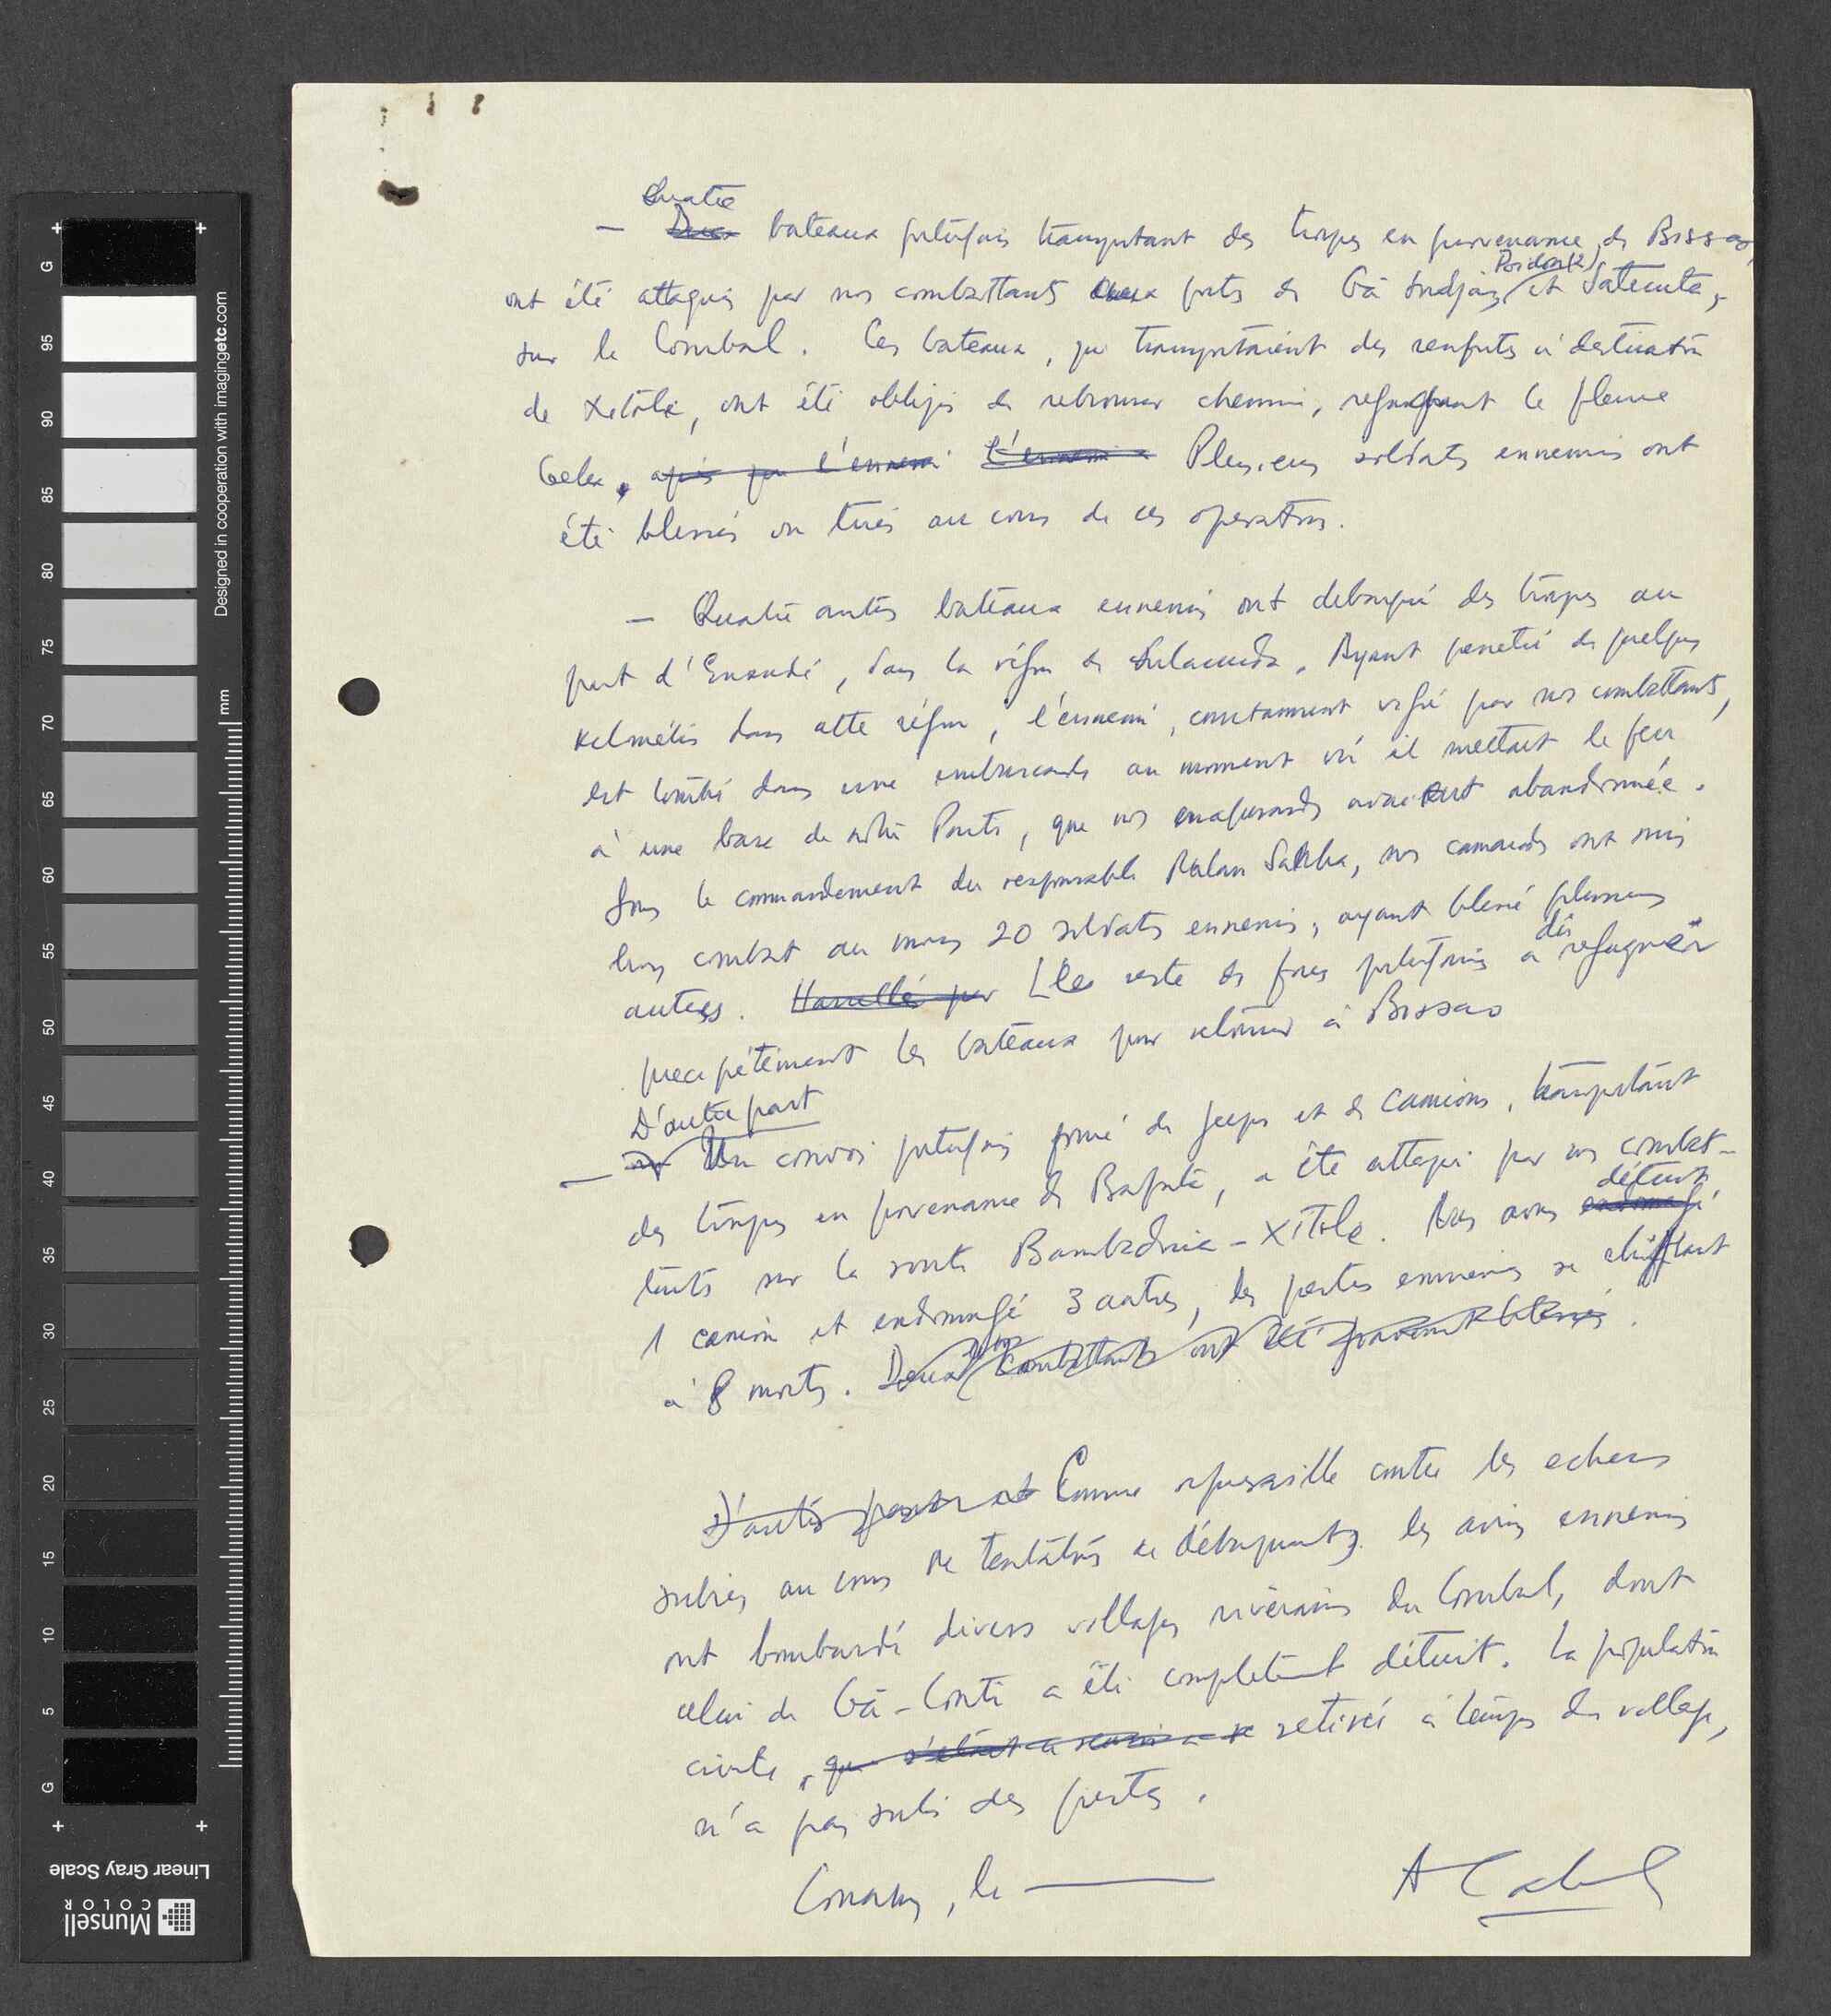 Quatre
— Deux bateaux portugais transportant des troupes en provenance de Bissao,
Poidon (2)
ont été attaqués par nos combattants aux ports de Gã et Satecuta,
sur le Corubal. Ces bateaux, qui transportaient des renforts à destination
de Xitole, ont été obligés de rebrousser chemin, regagnant le fleuve
Geba, après que l'ennemi l'ennemi a Plusieurs soldats ennemis ont
été blessés ou tués au cours de ces operations.
— Quatre autres bateaux ennemis ont debarqué des troupes au
port d'Enxudé, dans la région de Fulacunda. Ayant penetré de quelques
kilomètres dans cette région, l'ennemi, constamment vigié par nos combattants,
est tombé dans une embuscade au moment où il mettait le feu
à une base de notre Parti, que nos camarades avaient abandonnée.
Sous le commandement du responsable nos camarades ont mis
hors combat au moins 20 soldats ennemis, ayant blessé plusieurs
dû
autres. Harcellé par Le reste des forces portugaises a regagner
precipitément les bateaux pour retourner à Bissao
D'autre part
— Un convoi portugais formé de jeeps et de camions, transportant
des troupes en provenance de Bafatá, a été attaqué par nos combat-
détruit
tants sur la route Bambadinca - Xitole. Nous avons endommagé
1 camion et endommagé 3 autres, les pertes ennemies se chiffrant
nos
à 8 morts. Deux combattants ont été gravement blessés.
D'autre part Comme represaille contre les echecs
subies au cours de tentatives de débarquements les avions ennemis
ont bombardé divers villages riverains du Corubal, dont
celui de Gã-Conté a été completement détruit. La population
civile, qui s'était retirée à temps du village,
n'a pas subi des pertes.
Conakry, le
A Cabral